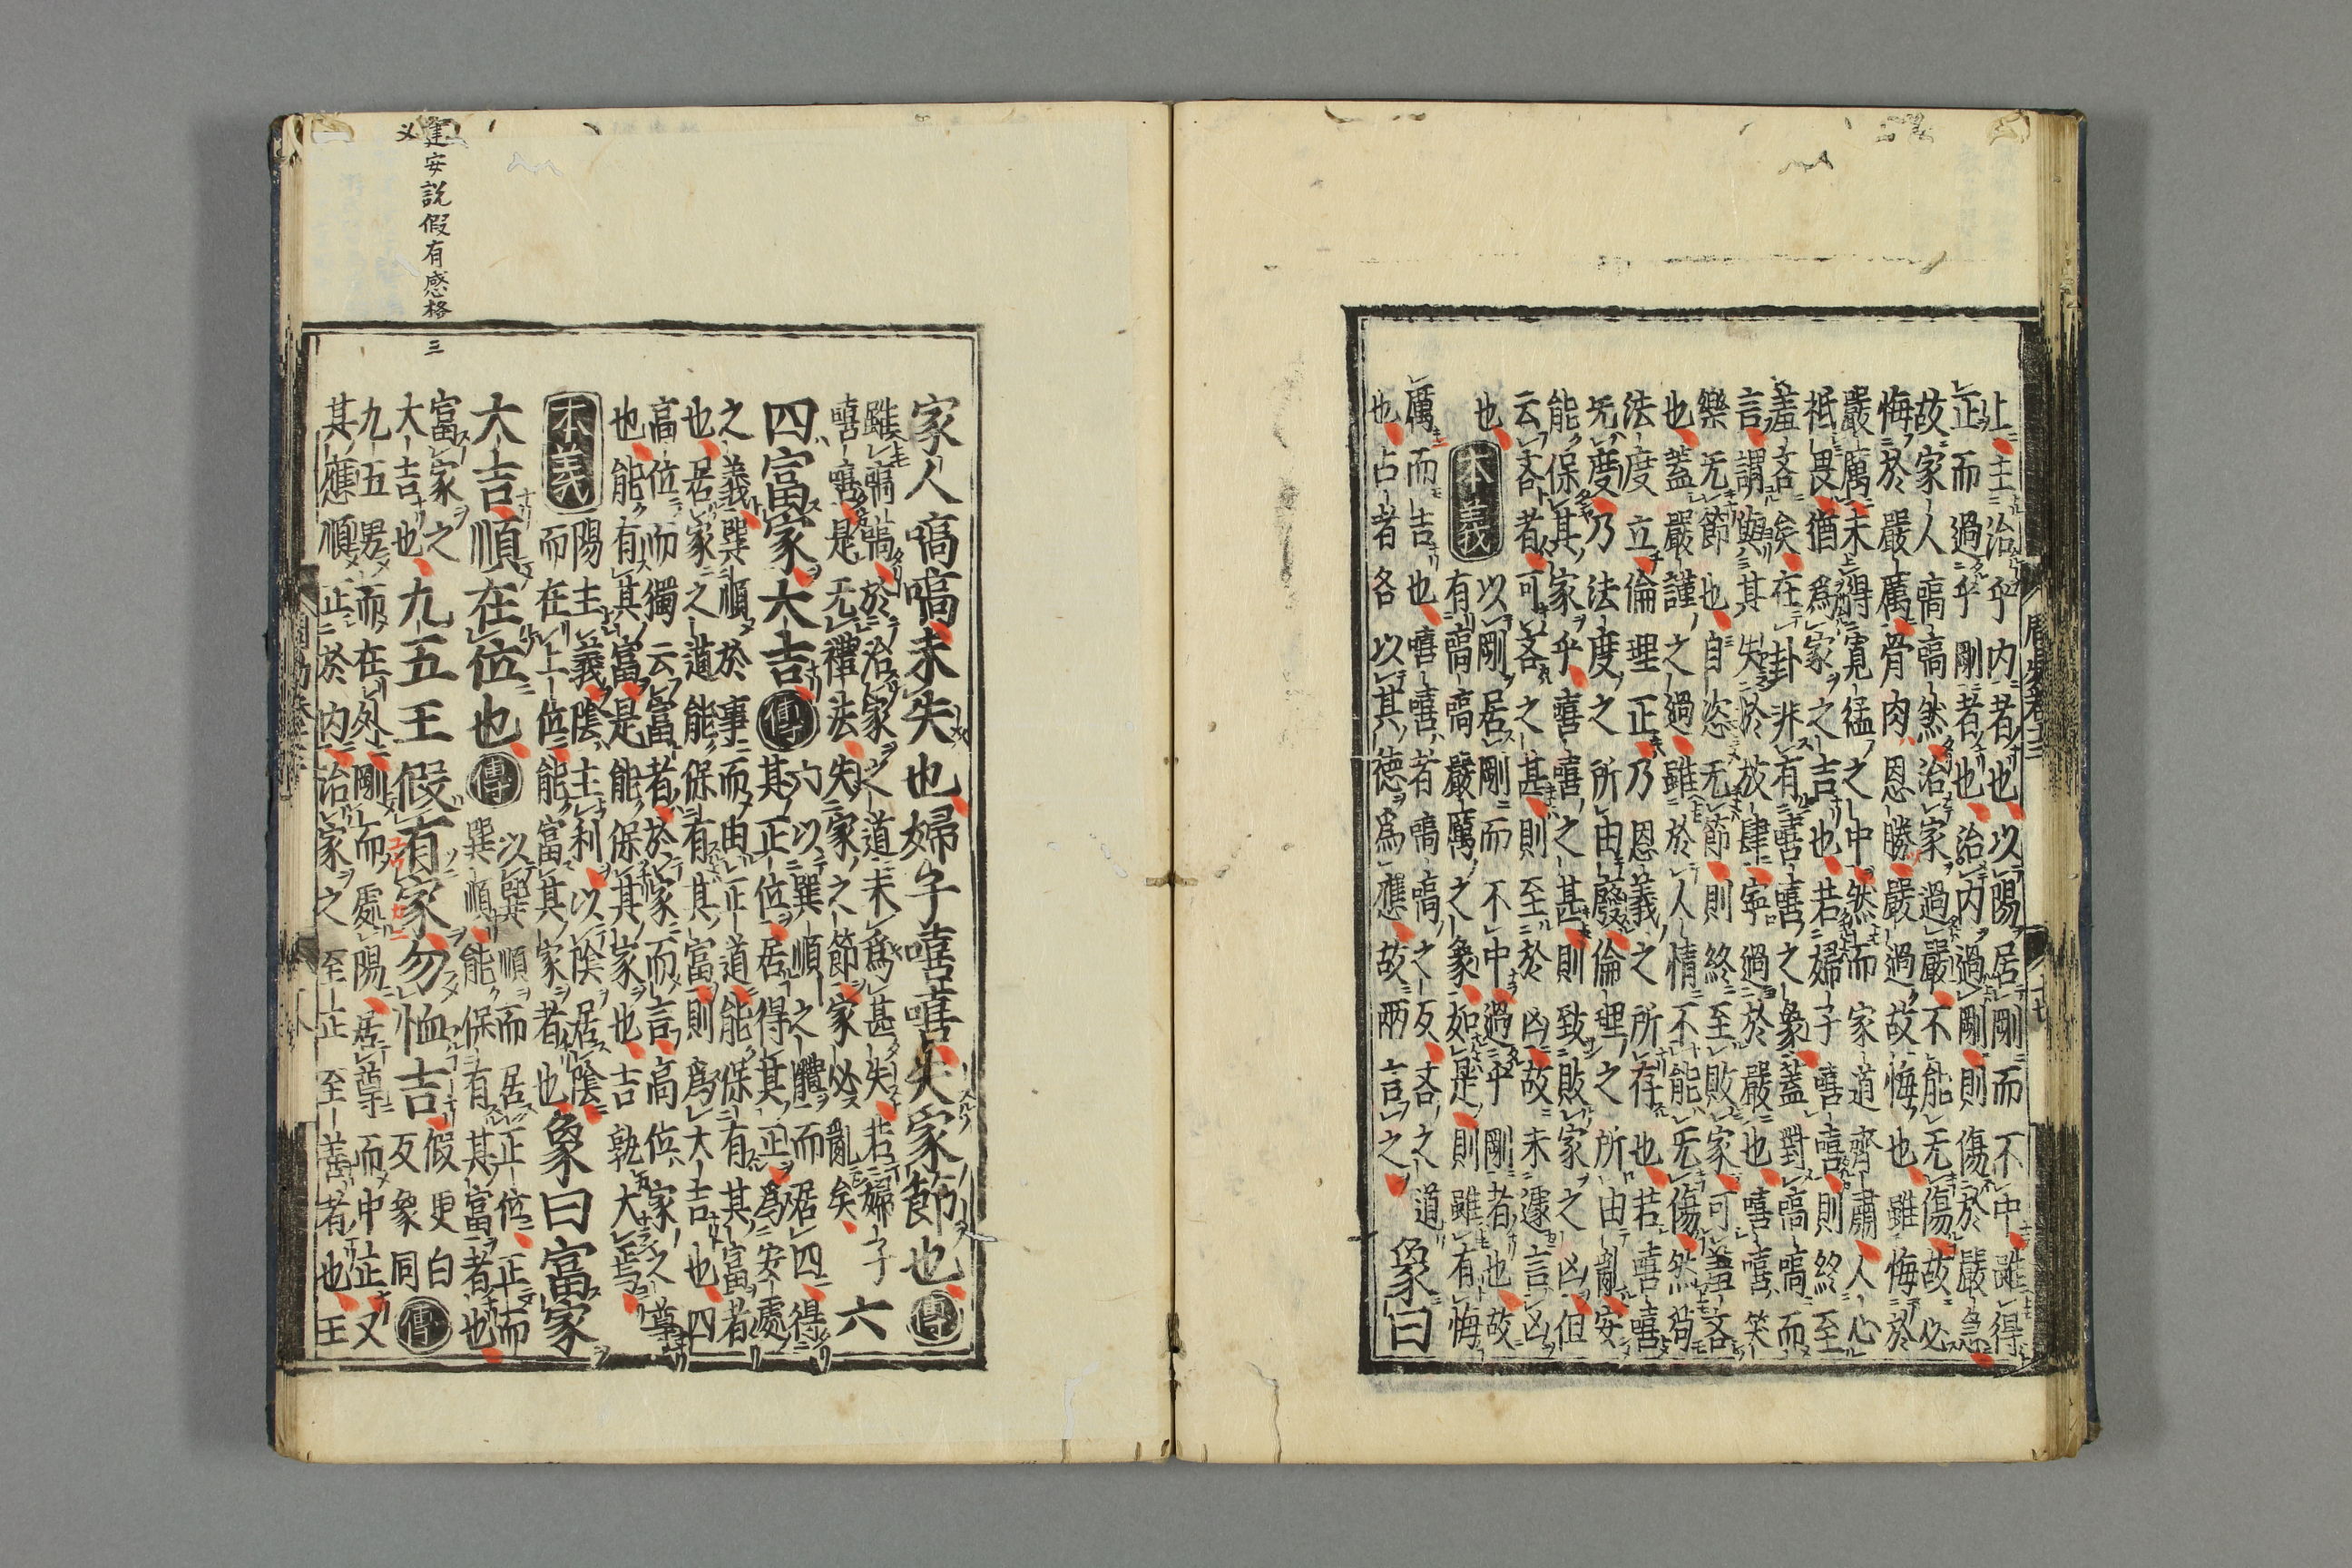 上主治乎内者也以陽居剛而不中雖得
正而過乎剛者也治内過剛則傷於嚴急
故家人嗃嗃然治家過嚴不能无傷故必
悔於嚴厲骨肉恩勝嚴過故悔也雖悔於
嚴厲未得寛猛之中然而家道齊肅人心
祗畏猶爲家之吉也若婦子嘻嘻則終至
羞吝矣在卦非有嘻嘻之象蓋對嗃嗃而
言謂與其失於放肆寧過於嚴也嘻嘻笑
樂无節也自恣无節則終至敗家可羞吝
也蓋嚴謹之過雖於人情不能无傷然苟
法度立倫理正乃恩義之所存也若嘻嘻
无度乃法度之所由廢倫理之所由亂安
能保其家乎嘻嘻之甚則致敗家之凶但
云吝者可吝之甚則至於凶故未遽言凶
也
本義
以剛居剛而不中過乎剛者也故
有嗃嗃嚴厲之象如是則雖有悔
厲而吉也嘻嘻者嗃嗃之反吝之道
也占者各以其德爲應故兩言之
象曰
周易卷十三
十七
家人嗃嗃未失也婦子嘻嘻失家節也
傳
雖嗃嗃於治家之道未爲甚失若婦子
嘻嘻是无禮法失家之節家必亂矣
六
四富家大吉
傳
六以巽順之體而居四得
其正位居得其正爲安處
之義巽順於事而由正道能保有其富者
也居家之道能保有其富則爲大吉也四
高位而獨云富者於家而言高位家之尊
也能有其富是能保其家也吉孰大焉
本義
陽主義陰主利以陰居陰
而在上位能富其家者也
象曰富家
大吉順在位也
傳
以巽順而居正位正而
巽順能保有其富者也
富家之
大吉也
九五王假有家勿恤吉
假更白
反象同
傳
九五男而在外剛而處陽居尊而中正又
其應順正於内治家之至正至善者也王
建安説假有感格三
义